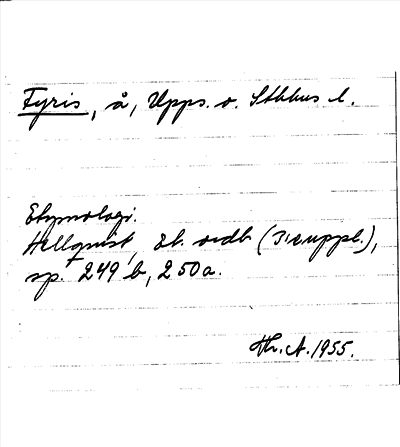 Fyris, å, Upps. o. Sthlms l.
Etymologi.
Hellquist, Et. ordb. (3:e uppl.),
sp. 249 b, 250 a.
Hr. A. 1955.